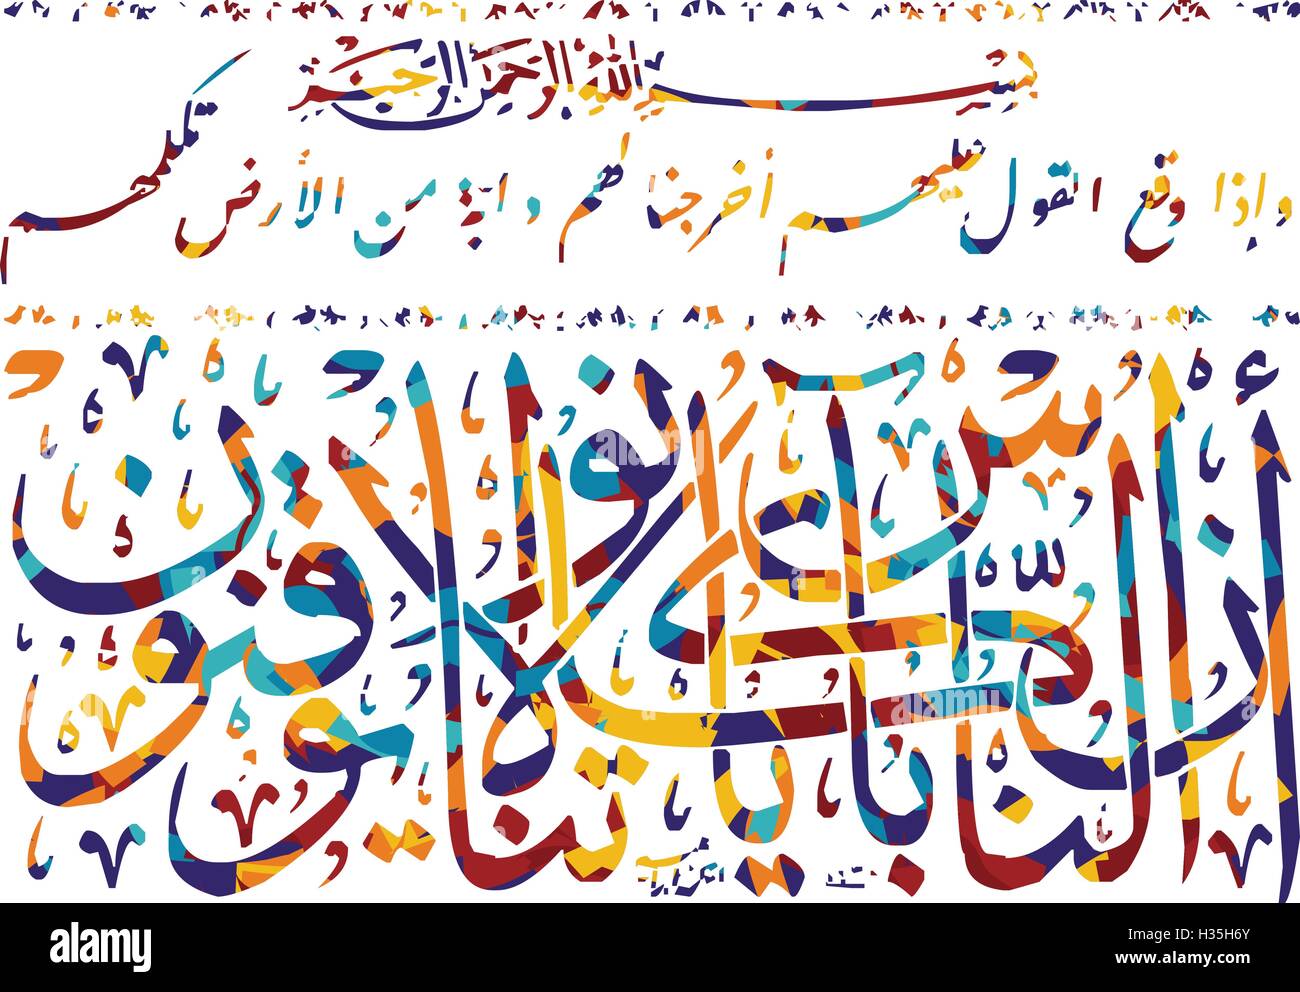 بسم الله الرحمن الرحيم
وإذا وقع القول عليهم أخرجنا لهم دابة من الأرض تكلمهم
أن الناس كانوا بآياتنا لا يوقنون
alamy
alamy stock photo
H35H6Y
www.alamy.com